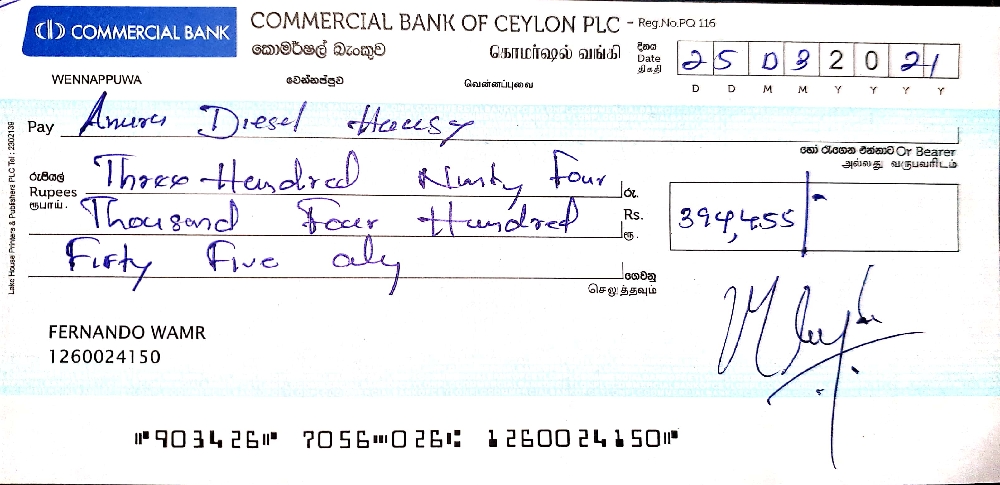 COMMERCIAL BANK
COMMERCIAL BANK OF CEYLON PLC - Reg.No.PQ 116
කොමර්ෂල් බැංකුව கொமர்ஷல் வங்கி
දිනය
Date
திகதி
25 03 2021
D D M M Y Y Y Y
WENNAPPUWA වෙන්නප්පුව வென்னப்புவை
Pay Anura Diesel House
හෝ රැගෙන එන්නාට Or Bearer
அல்லது வருபவரிடம்
රුපියල්
Rupees
ரூபாய்.
Three Hundred Ninty Four
Thousand Four Hundred
Fifty Five only
රු.
Rs.
ரூ.
394,455/-
ගෙවනු
செலுத்தவும்
FERNANDO WAMR
1260024150
⑈903426⑈ 7056⑉026⑆ 1260024150⑈
Lake House Printers & Publishers PLC Tel : 2302139